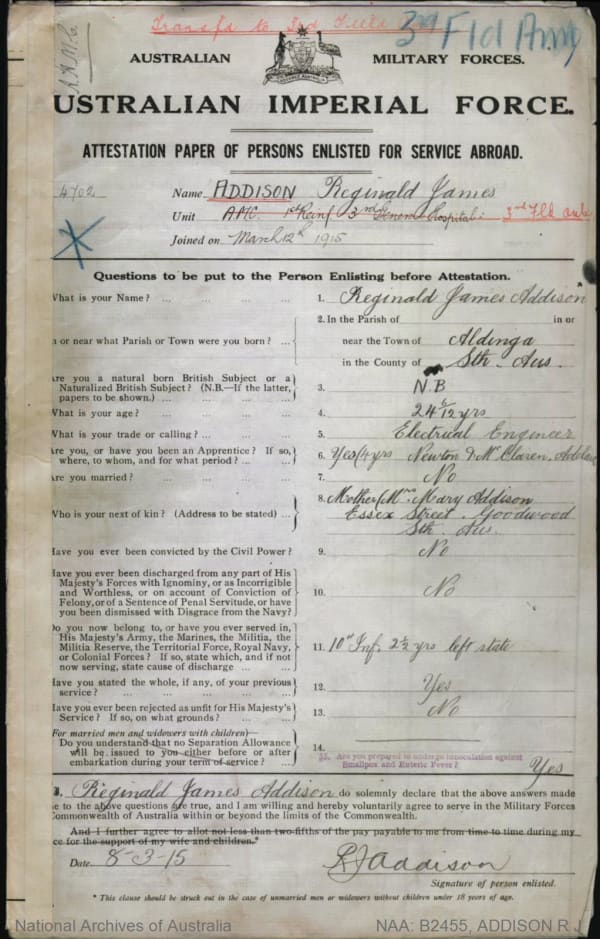 Transfd to 3rd Field
3rd Fld Amb
A.A.M.C
AUSTRALIAN MILITARY FORCES.
USTRALIAN IMPERIAL FORCE.
ATTESTATION PAPER OF PERSONS ENLISTED FOR SERVICE ABROAD.
4702 Name ADDISON Reginald James
Unit AMC. 1st Reinf 3rd Genrl Hospital. 3rd Fld Amb
Joined on March 12th 1915
Questions to be put to the Person Enlisting before Attestation.
What is your Name? ... ... ... ... 1. Reginald James Addison
2. In the Parish of in or
n or near what Parish or Town were you born? ... near the Town of Aldinga
in the County of Sth. Aus.
Are you a natural born British Subject or a
Naturalized British Subject? (N.B.—If the latter,
papers to be shown.) ... ... ... 3. N.B
What is your age? ... ... ... ... 4. 24 6/12 yrs
What is your trade or calling? ... ... ... 5. Electrical Engineer
Are you, or have you been an Apprentice? If so,
where, to whom, and for what period? ... ... 6. Yes (4 yrs Newton & McClaren, Adelaide
Are you married? ... ... ... ... 7. No
8. Mother Mrs Mary Addison
Who is your next of kin? (Address to be stated) ... Essex Street. Goodwood
Sth. Aus.
Have you ever been convicted by the Civil Power? 9. No
Have you ever been discharged from any part of His
Majesty's Forces with Ignominy, or as Incorrigible
and Worthless, or on account of Conviction of
Felony, or of a Sentence of Penal Servitude, or have
you been dismissed with Disgrace from the Navy? 10. No
Do you now belong to, or have you ever served in,
His Majesty's Army, the Marines, the Militia, the
Militia Reserve, the Territorial Force, Royal Navy,
or Colonial Forces? If so, state which, and if not
now serving, state cause of discharge ... ... 11. 10th Inf. 2½ yrs left state
Have you stated the whole, if any, of your previous
service? ... ... ... ... 12. Yes
Have you ever been rejected as unfit for His Majesty's
Service? If so, on what grounds? ... ... 13. No
(For married men and widowers with children)—
Do you understand that no Separation Allowance
will be issued to you either before or after
embarkation during your term of service? ... 14.
15. Are you prepared to undergo innoculation against
Smallpox and Enteric Fever? Yes
I, Reginald James Addison do solemnly declare that the above answers made
me to the above questions are true, and I am willing and hereby voluntarily agree to serve in the Military Forces
Commonwealth of Australia within or beyond the limits of the Commonwealth.
And I further agree to allot not less than two-fifths of the pay payable to me from time to time during my
ce for the support of my wife and children.*
Date 8-3-15 R J Addison
Signature of person enlisted.
* This clause should be struck out in the case of unmarried men or widowers without children under 18 years of age.
National Archives of Australia NAA: B2455, ADDISON R J